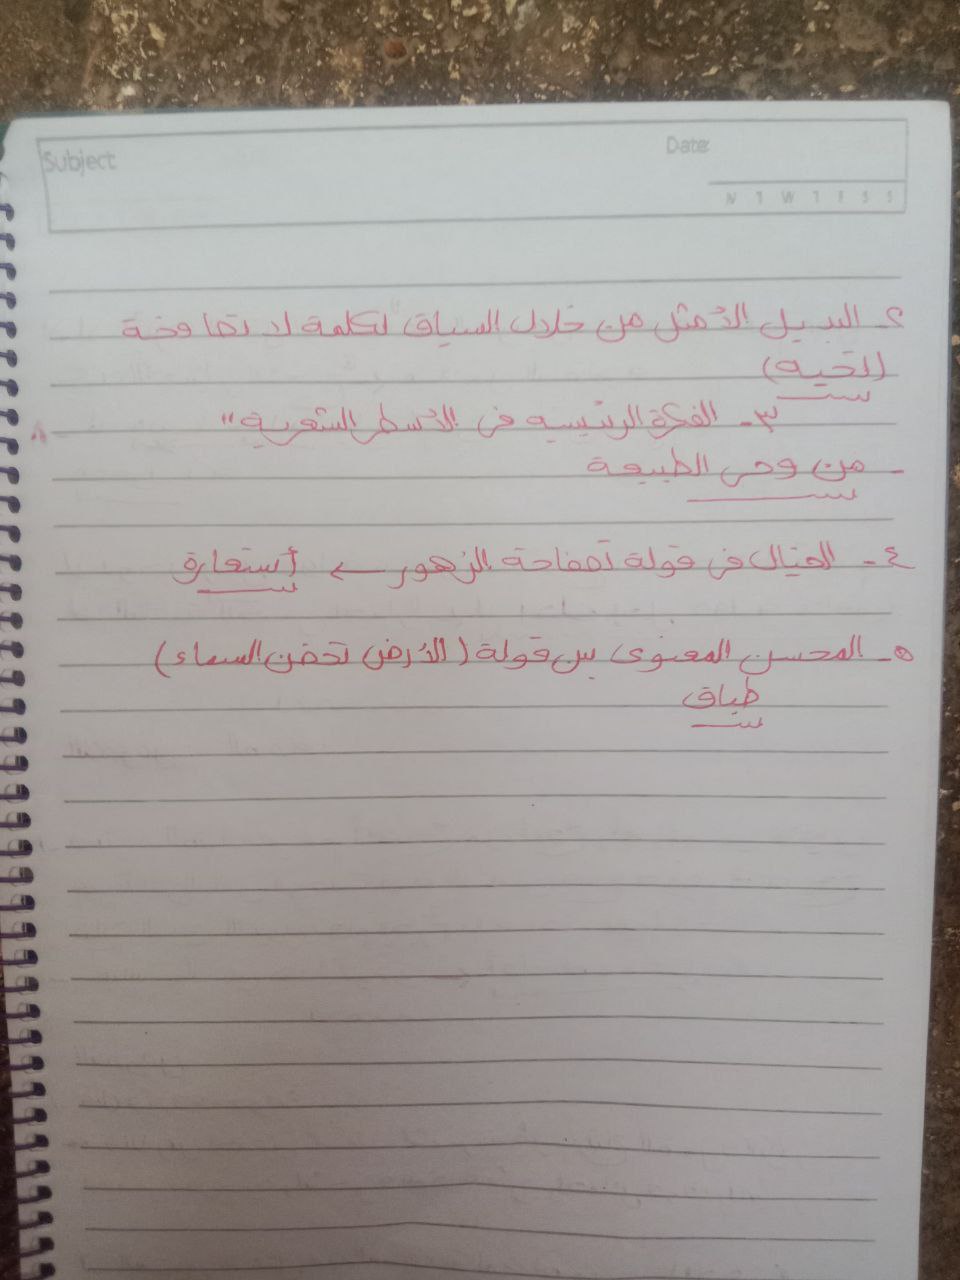 Subject
Date
٢- البديل الأمثل من خلال السياق لكلمة
(التحية)
٣- الفكرة الرئيسيه فى الأسطر الشعرية"
- من وحى الطبيعة
٤- الخيال فى قولة تفاحة الزهور ← أستعارة
٥- المحسن المعنوى بين قولة (الأرض تحضن السماء)
طباق